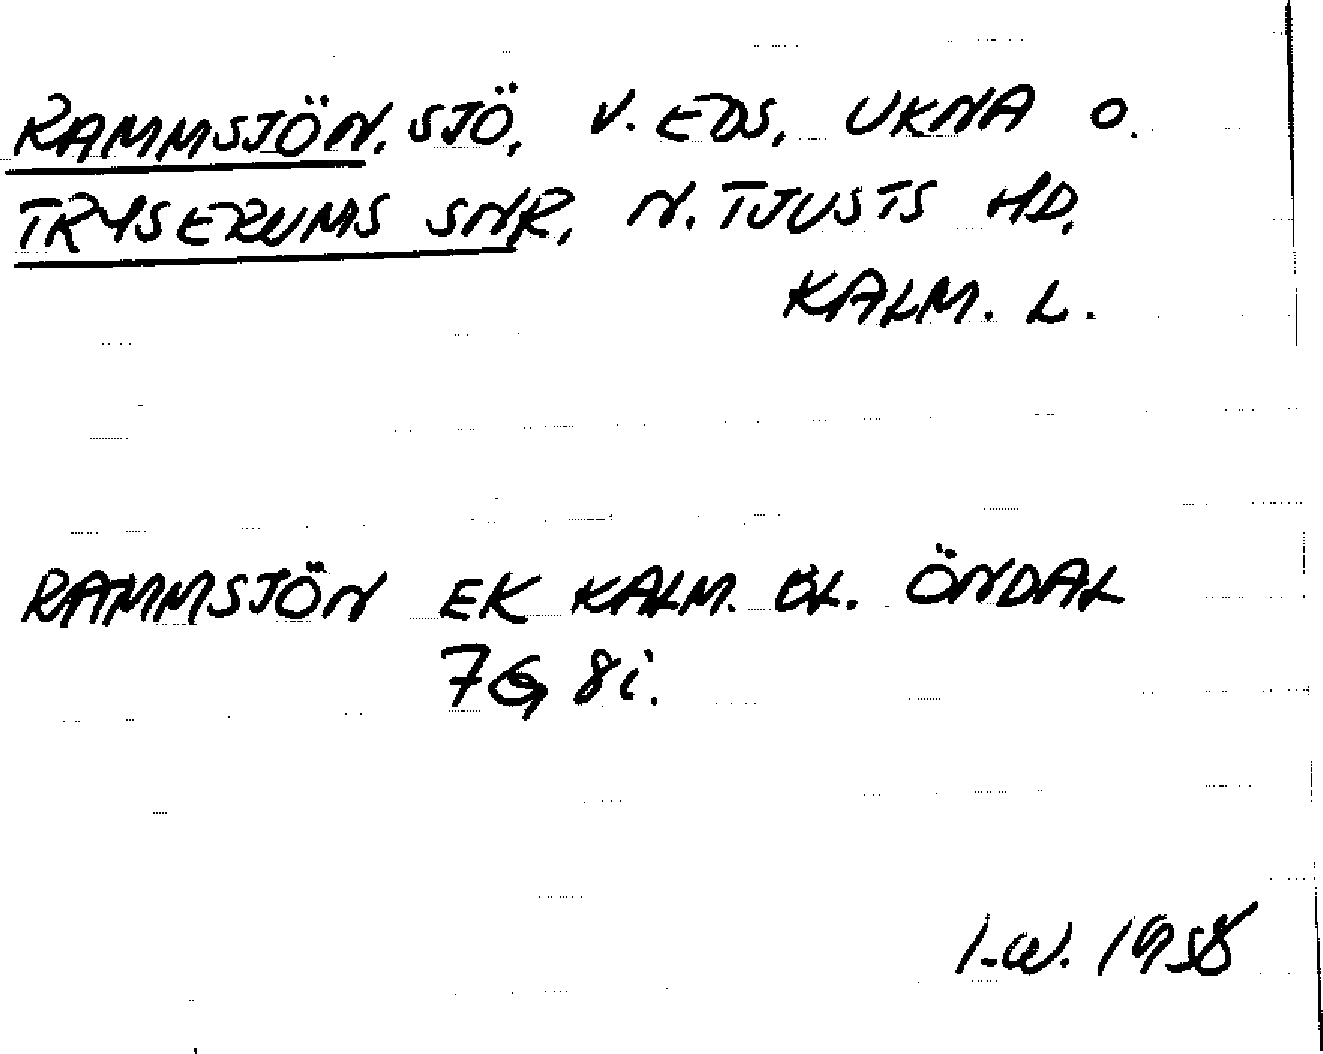 RAMMSJÖN, SJÖ, V. EDS, UKNA O.
TRYSERUMS SNR, N. TJUSTS HD,
KALM. L.
RAMMSJÖN EK KALM. BL. ÖNDAL
7G 8i.
I.W. 1958